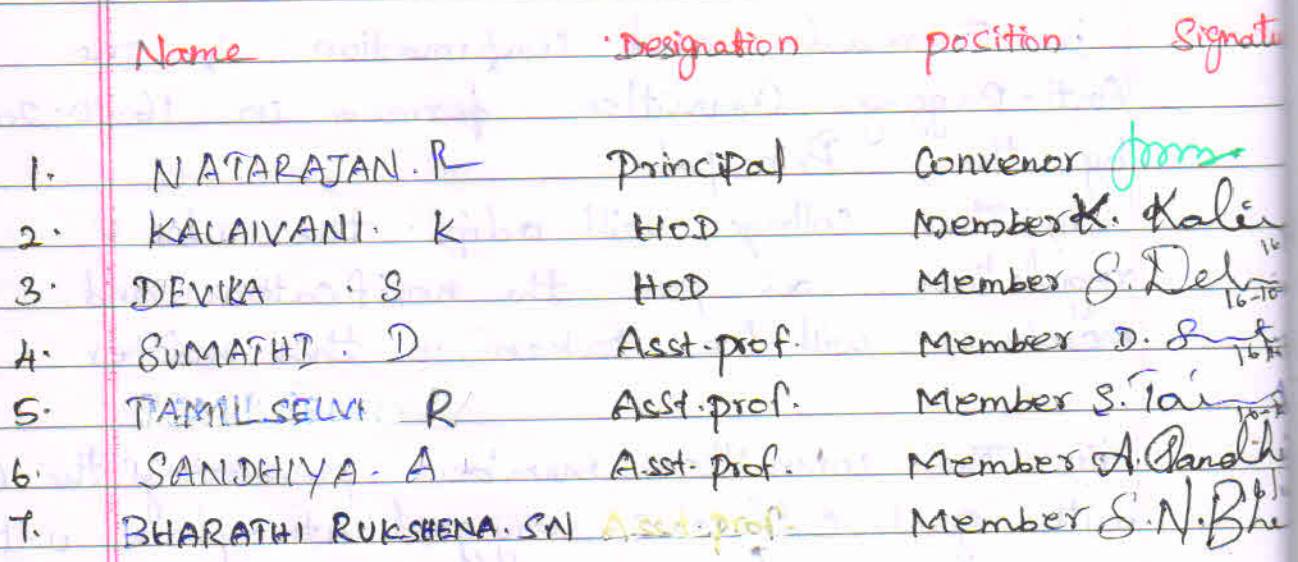 Name Designation Position Signatu
1. NATARAJAN. R Principal Convenor
2. KALAIVANI. K HOD Member K. Kali
3. DEVIKA . S HOD Member S. Dev 16-10
4. SUMATHI. D Asst. prof. Member D. S
5. TAMIL SELVI R Asst. prof. Member S. Tai
6. SANDHIYA. A Asst. prof. Member A. Sandhi
7. BHARATHI RUKSHENA. SN Asst. prof. Member S.N. Bh